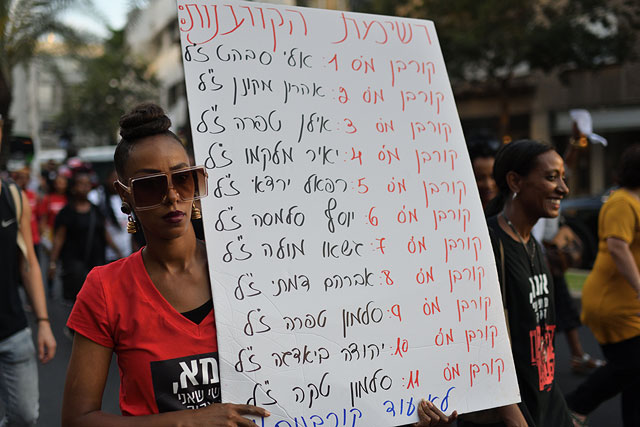 רשימת הקורבנות:
קורבן מס 1: אלי סבהט ז"ל
קורבן מס 2: אהרון מקונן ז"ל
קורבן מס 3: אילן טפרה ז"ל
קורבן מס 4: יאיר מלקמו ז"ל
קורבן מס 5: רפאל ירדאי ז"ל
קורבן מס 6: יוסף סלמסה ז"ל
קורבן מס 7: גשאו מולה ז"ל
קורבן מס 8: אברהם דמתי ז"ל
קורבן מס 9: סלמון טפרה ז"ל
קורבן מס 10: יהודה ביאדגה ז"ל
קורבן מס 11: סלמון טקה ז"ל
לא עוד קורבנות!
אמא,